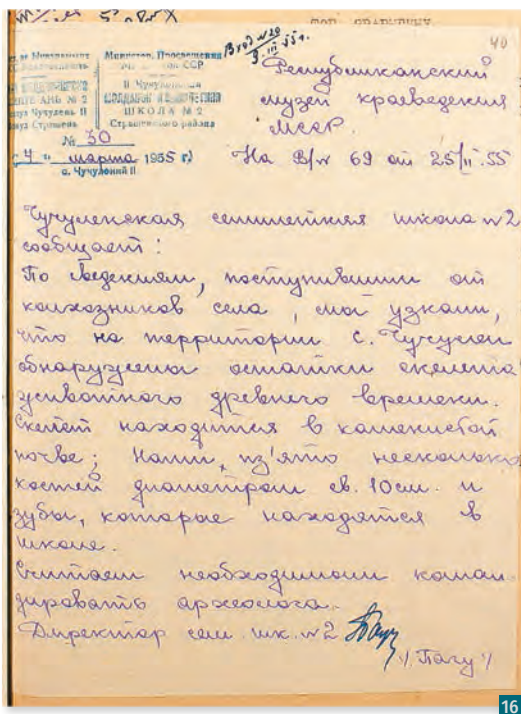 Вход №20
3. III 55 г.
40
Министер. Просвещения
ССР
II
ШКОЛА № 2
района
№ 30
„4 „ марта 1955 г)
с. Чучулений II
Республиканский
музей краеведения
МССР.
На В/№ 69 от 25/II.55
Чучуленская семилетняя школа №2
сообщает:
По сведениям, поступившим от
колхозников села, мы узнали,
что на территории с. Чучулен
обнаружены остатки скелета
животного древнего времени.
Скелет находится в каменистой
почве; Нами из'ято несколько
костей диаметром св. 10см. и
зубы, которые находятся в
школе.
Считаем необходимым коман-
дировать археолога.
Директор сем. шк. №2
/ Пагу /
16